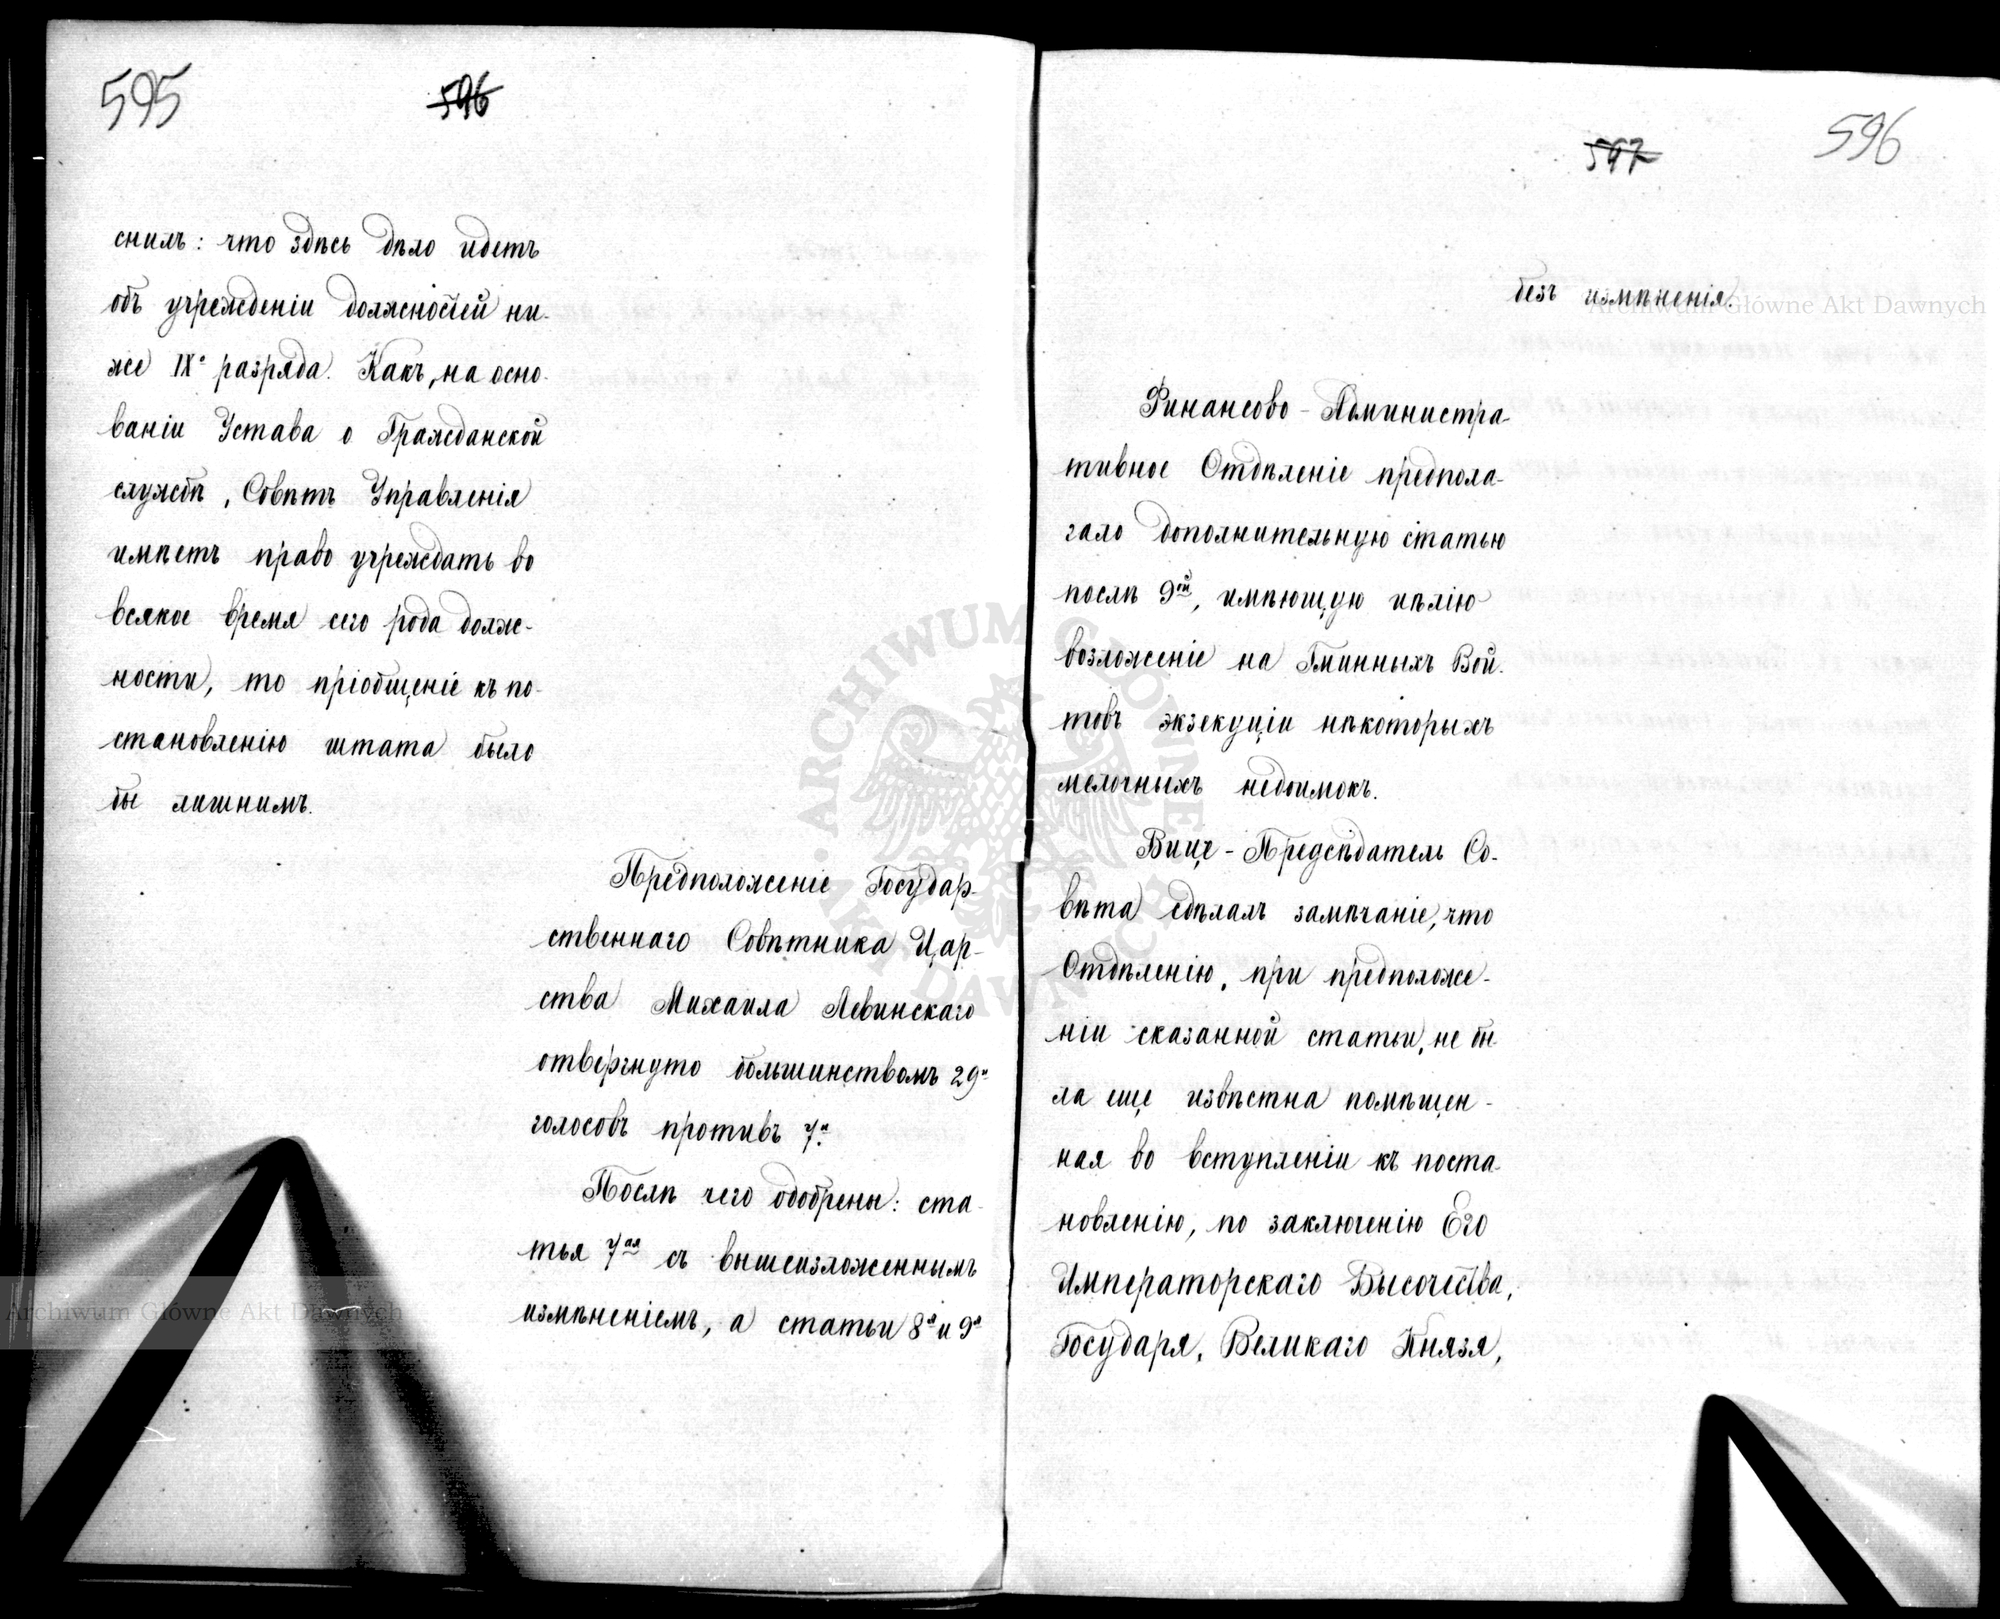 595
596
снилъ: что здѣсь дѣло идетъ
объ учрежденіи должностей ни-
же IXº разряда. Какъ, на осно-
ваніи Устава о Гражданской
службѣ, Совѣтъ Управленія
имѣетъ право учреждать во
всякое время сего рода долж-
ности, то пріобщеніе къ по-
становленію штата было
бы лишнимъ.
Предположеніе Государ-
ственнаго Совѣтника Цар-
ства Михаила Левинскаго
отвергнуто большинствомъ 29и
голосовъ противъ 7и.
Послѣ чего одобрены: ста-
тья 7ая съ вышеизложеннымъ
измѣненіемъ, а статьи 8я и 9я
597
596
безъ измѣненія.
Финансово-Администра-
тивное Отдѣленіе предпола-
гало дополнительную статью
послѣ 9ой, имѣющую цѣлію
возложеніе на Гминныхъ Вой-
товъ экзекуціи нѣкоторыхъ
мелочныхъ недоимокъ.
Вице-Предсѣдатель Со-
вѣта сдѣлалъ замѣчаніе, что
Отдѣленію, при предположе-
ніи сказанной статьи, не бы
ла еще извѣстна помѣщен-
ная во вступленіи къ поста-
новленію, по заключенію Его
Императорскаго Высочества,
Государя, Великаго Князя,
Archiwum Główne Akt Dawnych
Archiwum Główne Akt Dawnych
ARCHIWUM GŁÓWNE AKT DAWNYCH